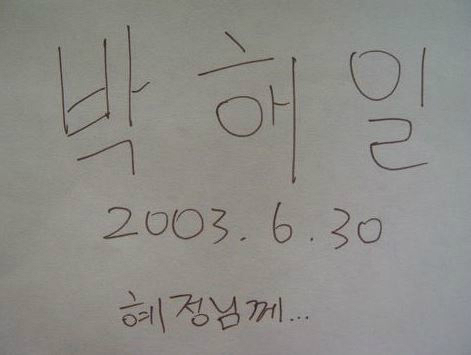 박 해 일
2003.6.30
혜정님께...